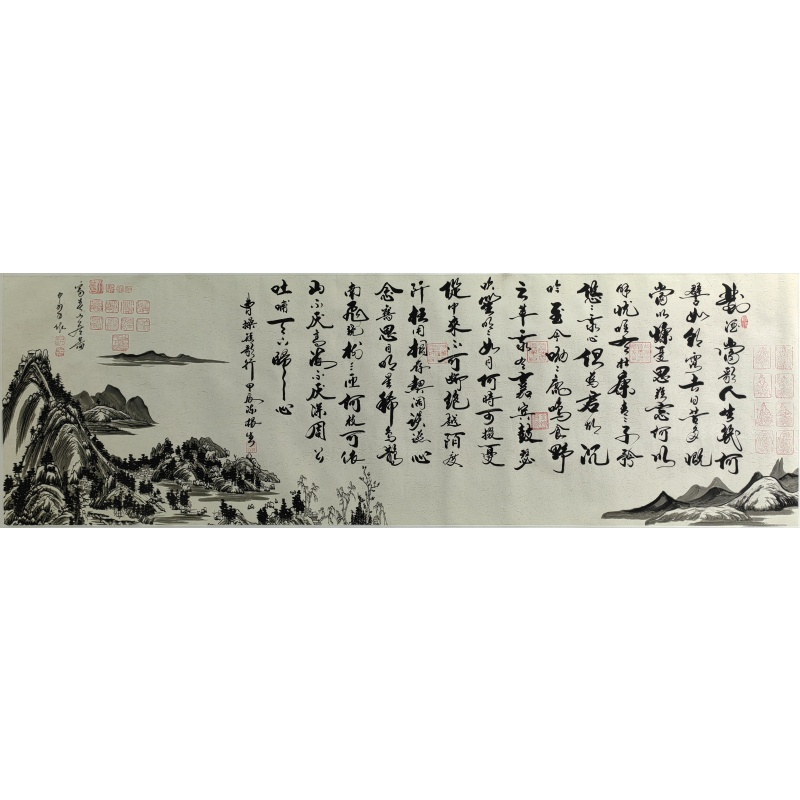 對酒當歌人生幾何
譬如朝露去日苦多慨
當以慷憂思難忘何以
解憂唯有杜康青々子衿
悠々我心但為君故沉
吟至今呦々鹿鳴食野
之苹我有嘉賓鼓瑟
吹笙明々如月何時可掇憂
從中來不可斷絕越陌度
阡枉用相存契闊談讌心
念舊恩月明星稀烏鵲
南飛繞樹三匝何枝可依
山不厭高海不厭深周公
吐哺天下歸心
曹操短歌行 甲辰
富春山居圖